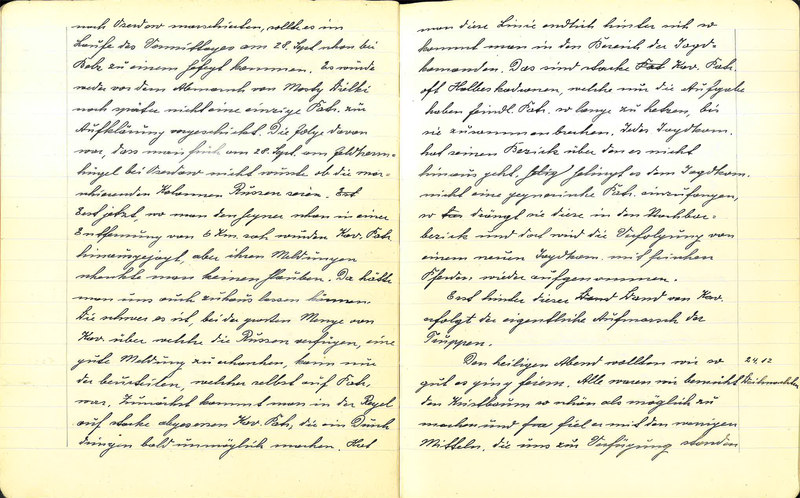 nach Uzedow marschierten, sollte es im
Laufe des Vormittages am 28. Sept. schon bei
Belz zu einem Gefegt kommen. Es wurde
weder vor dem Abmarsch von Mosty Wielki
noch später nicht eine einzige Patr. zur
Aufklärung vorgeschickt. Die Folge davon
war, dass man früh am 28. Sept. am
hügel bei nicht wusste ob die mar-
schierenden Kolonnen Russen seien. Est
Erst jetzt, wo man den Gegner schon in einer
Entfernung von 6 Km. sah, wurden Kav. Patr.
hinausgejagt, aber ihren Meldungen
schenkte man keinen Glauben. Da hätte
man uns auch zuhaus lassen können.
Wie schwer es ist, bei der grossen Menge von
Kav. über welche die Russen verfügen, eine
gute Meldung zu erhalten, kann nur
der beurteilen, welcher selbst auf Patr.
war. Zunächst kommt man in der Regel
auf starke abgesessene Kav. Patr., die ein Durch
dringen bald unmöglich machen. Hat
man diese Linie endlich hinter sich so
kommt man in den Bereich der Jagd-
komanden. Das sind starke Pat Kav. Patr.
oft Halbeskadronen, welche nur die Aufgabe
haben feindl. Patr. so lange zu hetzen, bis
sie zusammenbrechen. Jedes Jagdkom.
hat seinen Bezirk über den es nicht
hinaus geht. Gelingt es dem Jagdkom.
nicht eine gegnerische Patr. einzufangen,
so drängt sie diese in den Nachbar-
bezirk und dort wird die Verfolgung von
einem neuen Jagdkom. mit frischen
Pferden wieder aufgenommen.
Erst hinter dieser Wand von Kav.
erfolgt der eigentliche Aufmarsch der
Truppen.
Den heiligen Abend wollten wir so 24.12
gut es ging feiern. Alle waren wir bemüht Weihnachten
den Kristbaum so schön als möglich zu
machen und fiel er mit den wenigen
Mitteln, die uns zur Verfügung standen